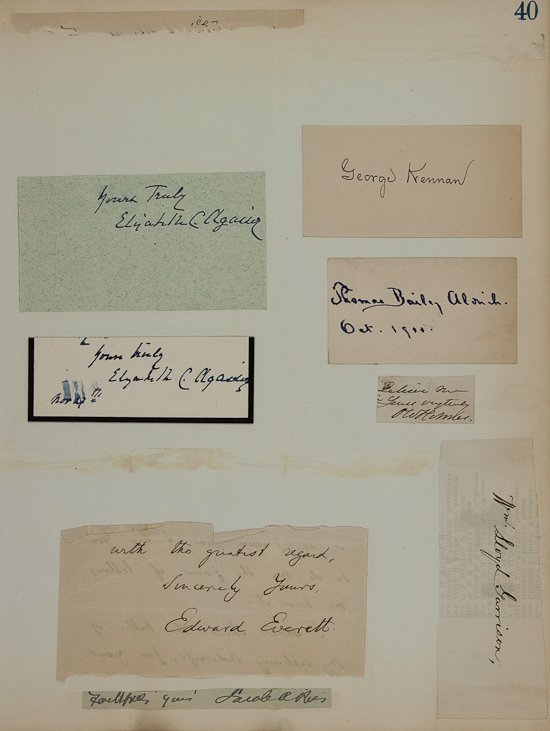 40
Yours Truly
Elizabeth C. Agassiz
George Kennan
Thomas Bailey Aldrich.
Oct. 1900.
Yours truly
Elizabeth C. Agassiz
Believe me
Yours very truly
O W Holmes.
Wm. Lloyd Garrison,
with the greatest regard,
Sincerely Yours,
Edward Everett.
Faithfully yours Jacob A. Riis